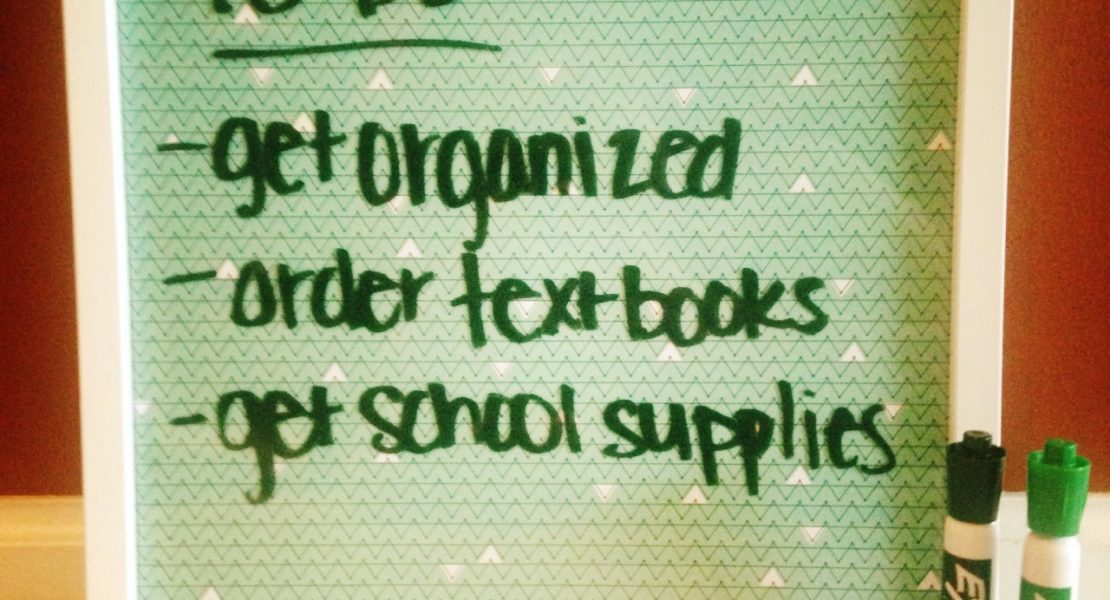 To Do
-get organized
-order textbooks
-get school supplies